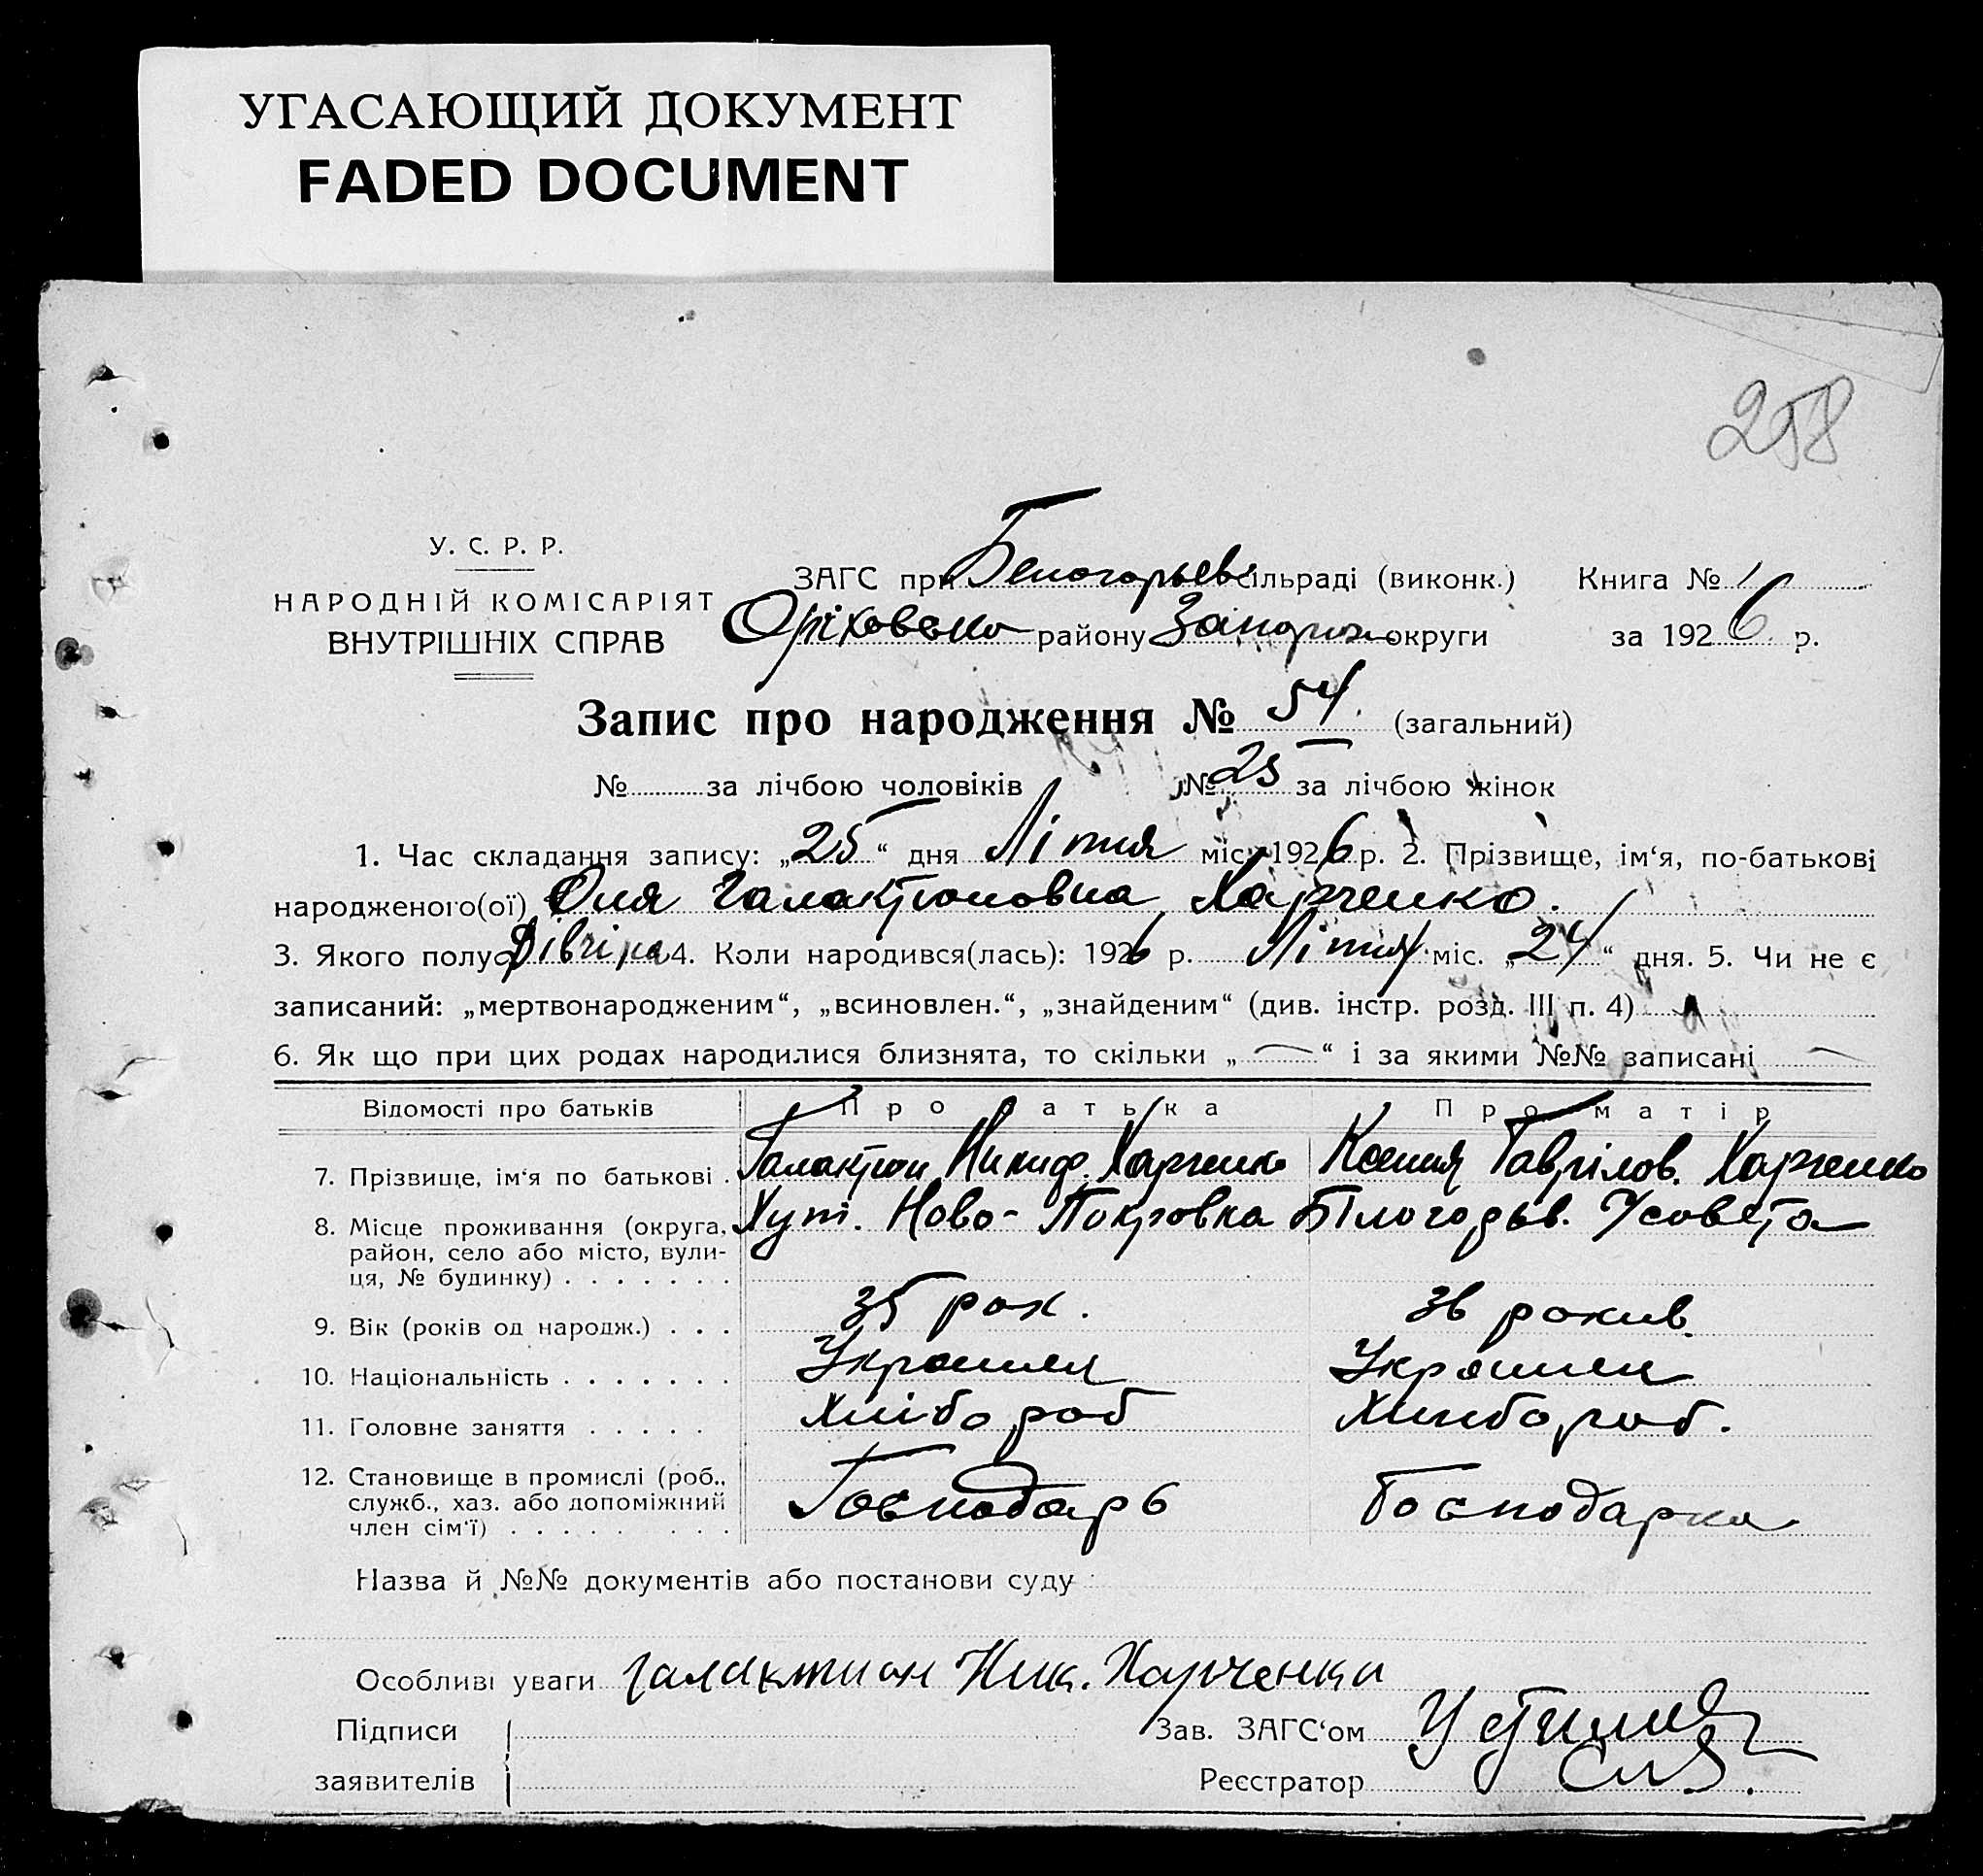 УГАСАЮЩИЙ ДОКУМЕНТ
FADED DOCUMENT
258
У. С. Р. Р.
НАРОДНІЙ КОМІСАРІЯТ
ВНУТРІШНІХ СПРАВ
ЗАГС при Белогорьев сільраді (виконк.) Книга № 1
Оріховсько району Запориз округи за 1926 р.
Запис про народження № 54. (загальний)
№ за лічбою чоловіків № 25 за лічбою жінок
1. Час складання запису: „25“ дня Літня міс. 1926 р. 2. Прізвище, ім‘я, по-батькові
народженого(ої) Оля Галактионовна Харченко.
3. Якого полу Дівчіна 4. Коли народився(лась): 1926 р. Літня міс. „24“ дня. 5. Чи не є
записаний: „мертвонародженим“, „всиновлен.“, „знайденим“ (див. інстр. розд. III п. 4)
6. Як що при цих родах народилися близнята, то скільки „—“ і за якими №№ записані —
Відомості про батьків Про батька Про матір
7. Прізвище, ім‘я по батькові . Галактион Никиф. Харченко Ксения Гаврілов. Харченко
8. Місце проживання (округа, Хут. Ново-Покровка Білогорьв.
район, село або місто, вули-
ця, № будинку) . . . . . . .
9. Вік (років од народж.) . . . 35 рок. 36 рокив.
10. Національність . . . . . . . Украинец Украинец
11. Головне заняття . . . . . Хлібороб Хлибороб.
12. Становище в промислі (роб., Господарь Господарка
служб., хаз. або допоміжний
член сім‘ї) . . . . . . . . .
Назва й №№ документів або постанови суду
Особливі уваги галактион Ник. Харченко
Підписи Зав. ЗАГС‘ом
заявителів Реєстратор